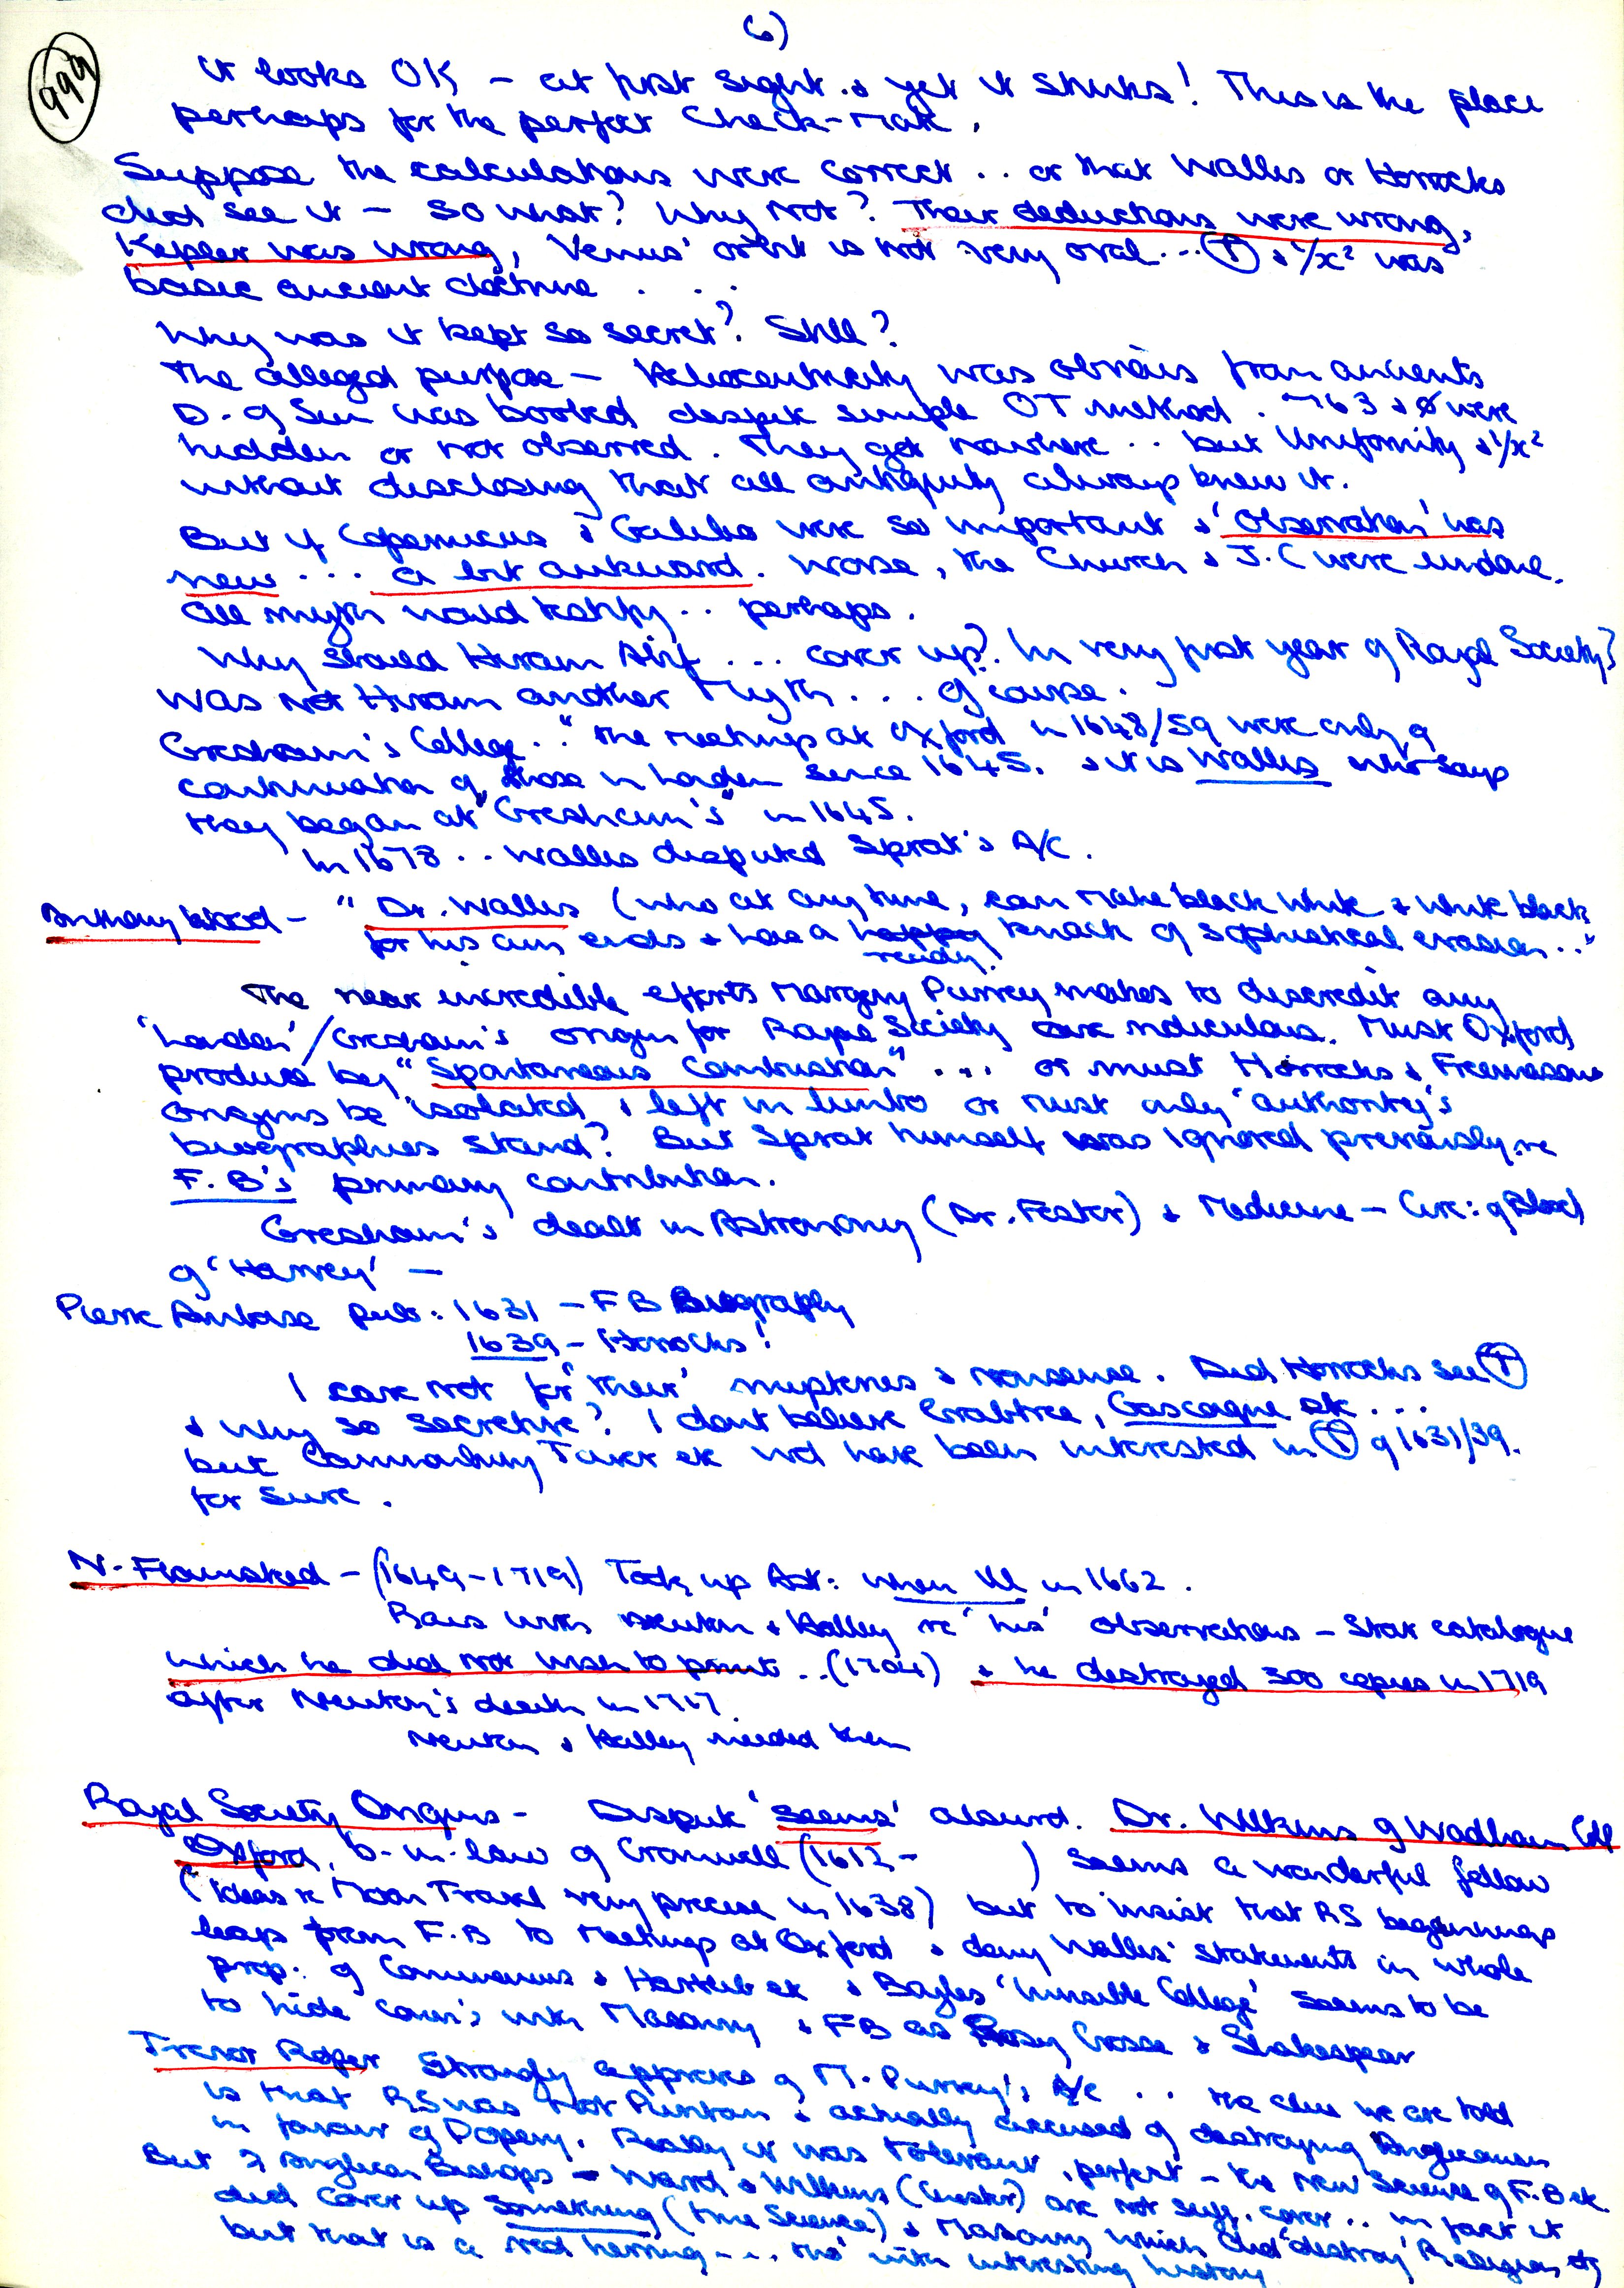 6)
999
it looks OK – at first sight & yet it stinks! This is the place
perhaps for the perfect Check-Mate.
Suppose the calculations were correct .. or that Wallis or Horrocks
did see it – so what? Why not? Their deductions were wrong,
Kepler was wrong, Venus' orbit is not very oval ... (T) & 1/x² was
basic ancient doctrine . . .
Why was it kept so secret? Still?
The alleged purpose – Heliocentricity was obvious from ancients
D. of Sun was booked despite simple OT method. 763 & Ø were
hidden or not observed. They got nowhere .. but Uniformity & 1/x²
without disclosing that all antiquity always knew it.
But if Copernicus & Galileo were so important & 'Observation' was
new ... a bit awkward. Worse, the Church & J.C were undone.
All myth would testify .. perhaps.
Why should Hiram Abif ... cover up? In very first year of Royal Society?
Was not Hiram another Myth ... of course.
Gresham's College .. "the meetings at Oxford in 1648/59 were only a
continuation of those in London since 1645. & it is Wallis who says
they began at "Gresham's" in 1645.
In 1678 .. Wallis disputed Sprat's A/C.
Anthony Wood – "Dr. Wallis (who at any time, can make black white & white black
for his own ends & have a happy knack of sophistical evasion .."
ready
The near incredible efforts Margery Purvey makes to discredit any
'London'/Gresham's origin for Royal Society are ridiculous. Must Oxford
produce by "Spontaneous Combustion" ... or must Horrocks & Freemasons
Origins be isolated & left in limbo or must only 'authority's
biographies stand? But Sprat himself was ignored previously re
F.B's primary contribution.
Gresham's dealt in Astronomy (Dr. Foster) & Medicine – Circ: of Blood
of 'Harvey' –
Pierre Amboise pub: 1631 – FB Biography
1639 – Horrocks!
I care not for 'their' mysteries & nonsense. Did Horrocks see (T)
& why so secretive? I dont believe Crabtree, Gascoigne etc ...
but Cannonbury Tower etc wd have been interested in (T) of 1631/39.
for sure.
N. Flamsteed – (1649-1719) Took up Ast: when ill in 1662.
Rows with Newton & Halley re 'his' observations – Star catalogue
which he did not wish to print .. (1704) & he destroyed 300 copies in 1719
after Newton's death in 1717.
Newton & Halley needed them
Royal Society Origins – Dispute 'seems' absurd. Dr. Wilkins of Wadham Coll
Oxford, b-in-law of Cromwell (1612 - ) seems a wonderful fellow
(Ideas re Moon Travel very precise in 1638) but to insist that RS beginnings
leaps from F.B to meetings at Oxford & deny Wallis' statements in whole
prop: of Commenius & Hartlib etc & Boyles 'Invisible College' seems to be
to hide conn's with Masonry & FB as Rosy Crosse & Shakespear
Trevor Roper strongly approves of M. Purvey's A/c .. the clue we are told
is that RS was Not Puritan & actually accused of destroying Anglicanism
in favour of Popery. Really it was Tolerant, perfect – the New Science of F.B etc
But 2 Anglican Bishops – Ward & Wilkins (Chester) are not suff. cover .. in fact it
did cover up something (true Science) & Masonry which did 'destroy' Religion etc
but that is a red herring ... tho' with interesting history